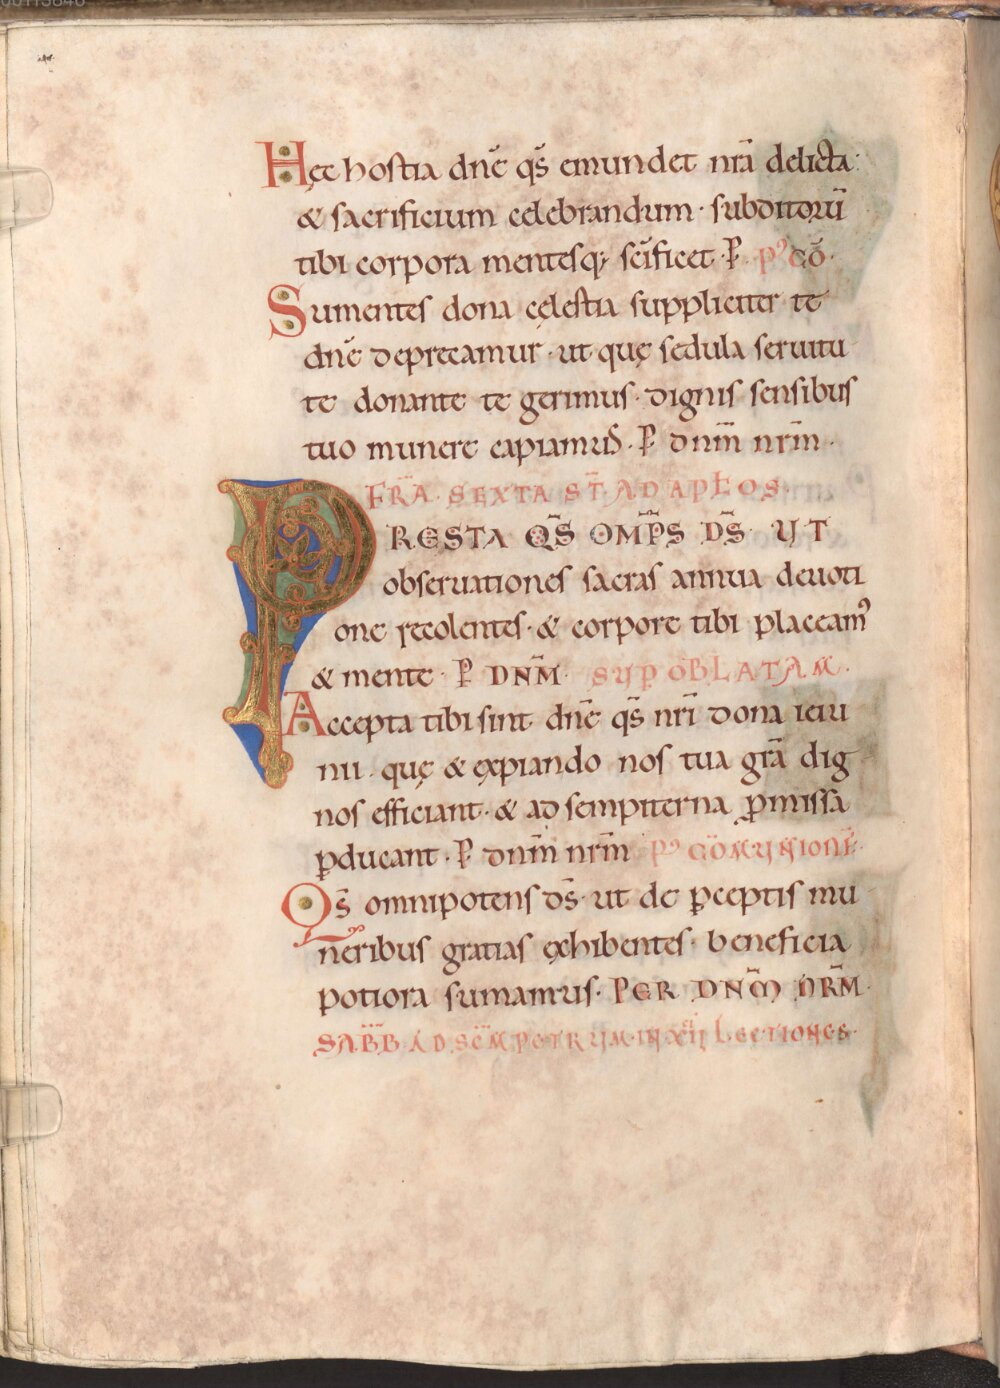 Hęc hostia dnē qs̄ emundet nrā delicta·
& sacrificium celebrandum· subditorū
tibi corpora mentesq; scīficet· P̲ p' cō·
Sumentes dona cęlestia suppliciter te
dnē deprecamur· ut quę sedula seruitu
te donante te gerimus· dignis sensibus
tuo munere capiamus· P̲ dnm̄ nrm̄·
FRĀ· SEXTA ST̄· AD APL̄OS·
PRESTA QS̄ OMP̄S DS̄ UT
obseruationes sacras annua deuoti
one recolentes· & corpore tibi placeam'
& mente· P̲ DNM̄· SUP OBLATAM·
Accepta tibi sint dnē qs̄ nrī dona ieiu
nii· quę & expiando nos tua grā dig
nos efficiant· & ad sempiterna ꝓmissa
ꝑducant· P̲ dnm̄ nrm̄ p' COM̄UNIONĒ·
Qs̄ omnipotens ds̄· ut de ꝑceptis mu
neribus gratias exhibentes· beneficia
potiora sumamus· PER DNM̄ NRM̄·
SABB̄ AD SCM̄ PETRUM· IN XII LECTIONES·